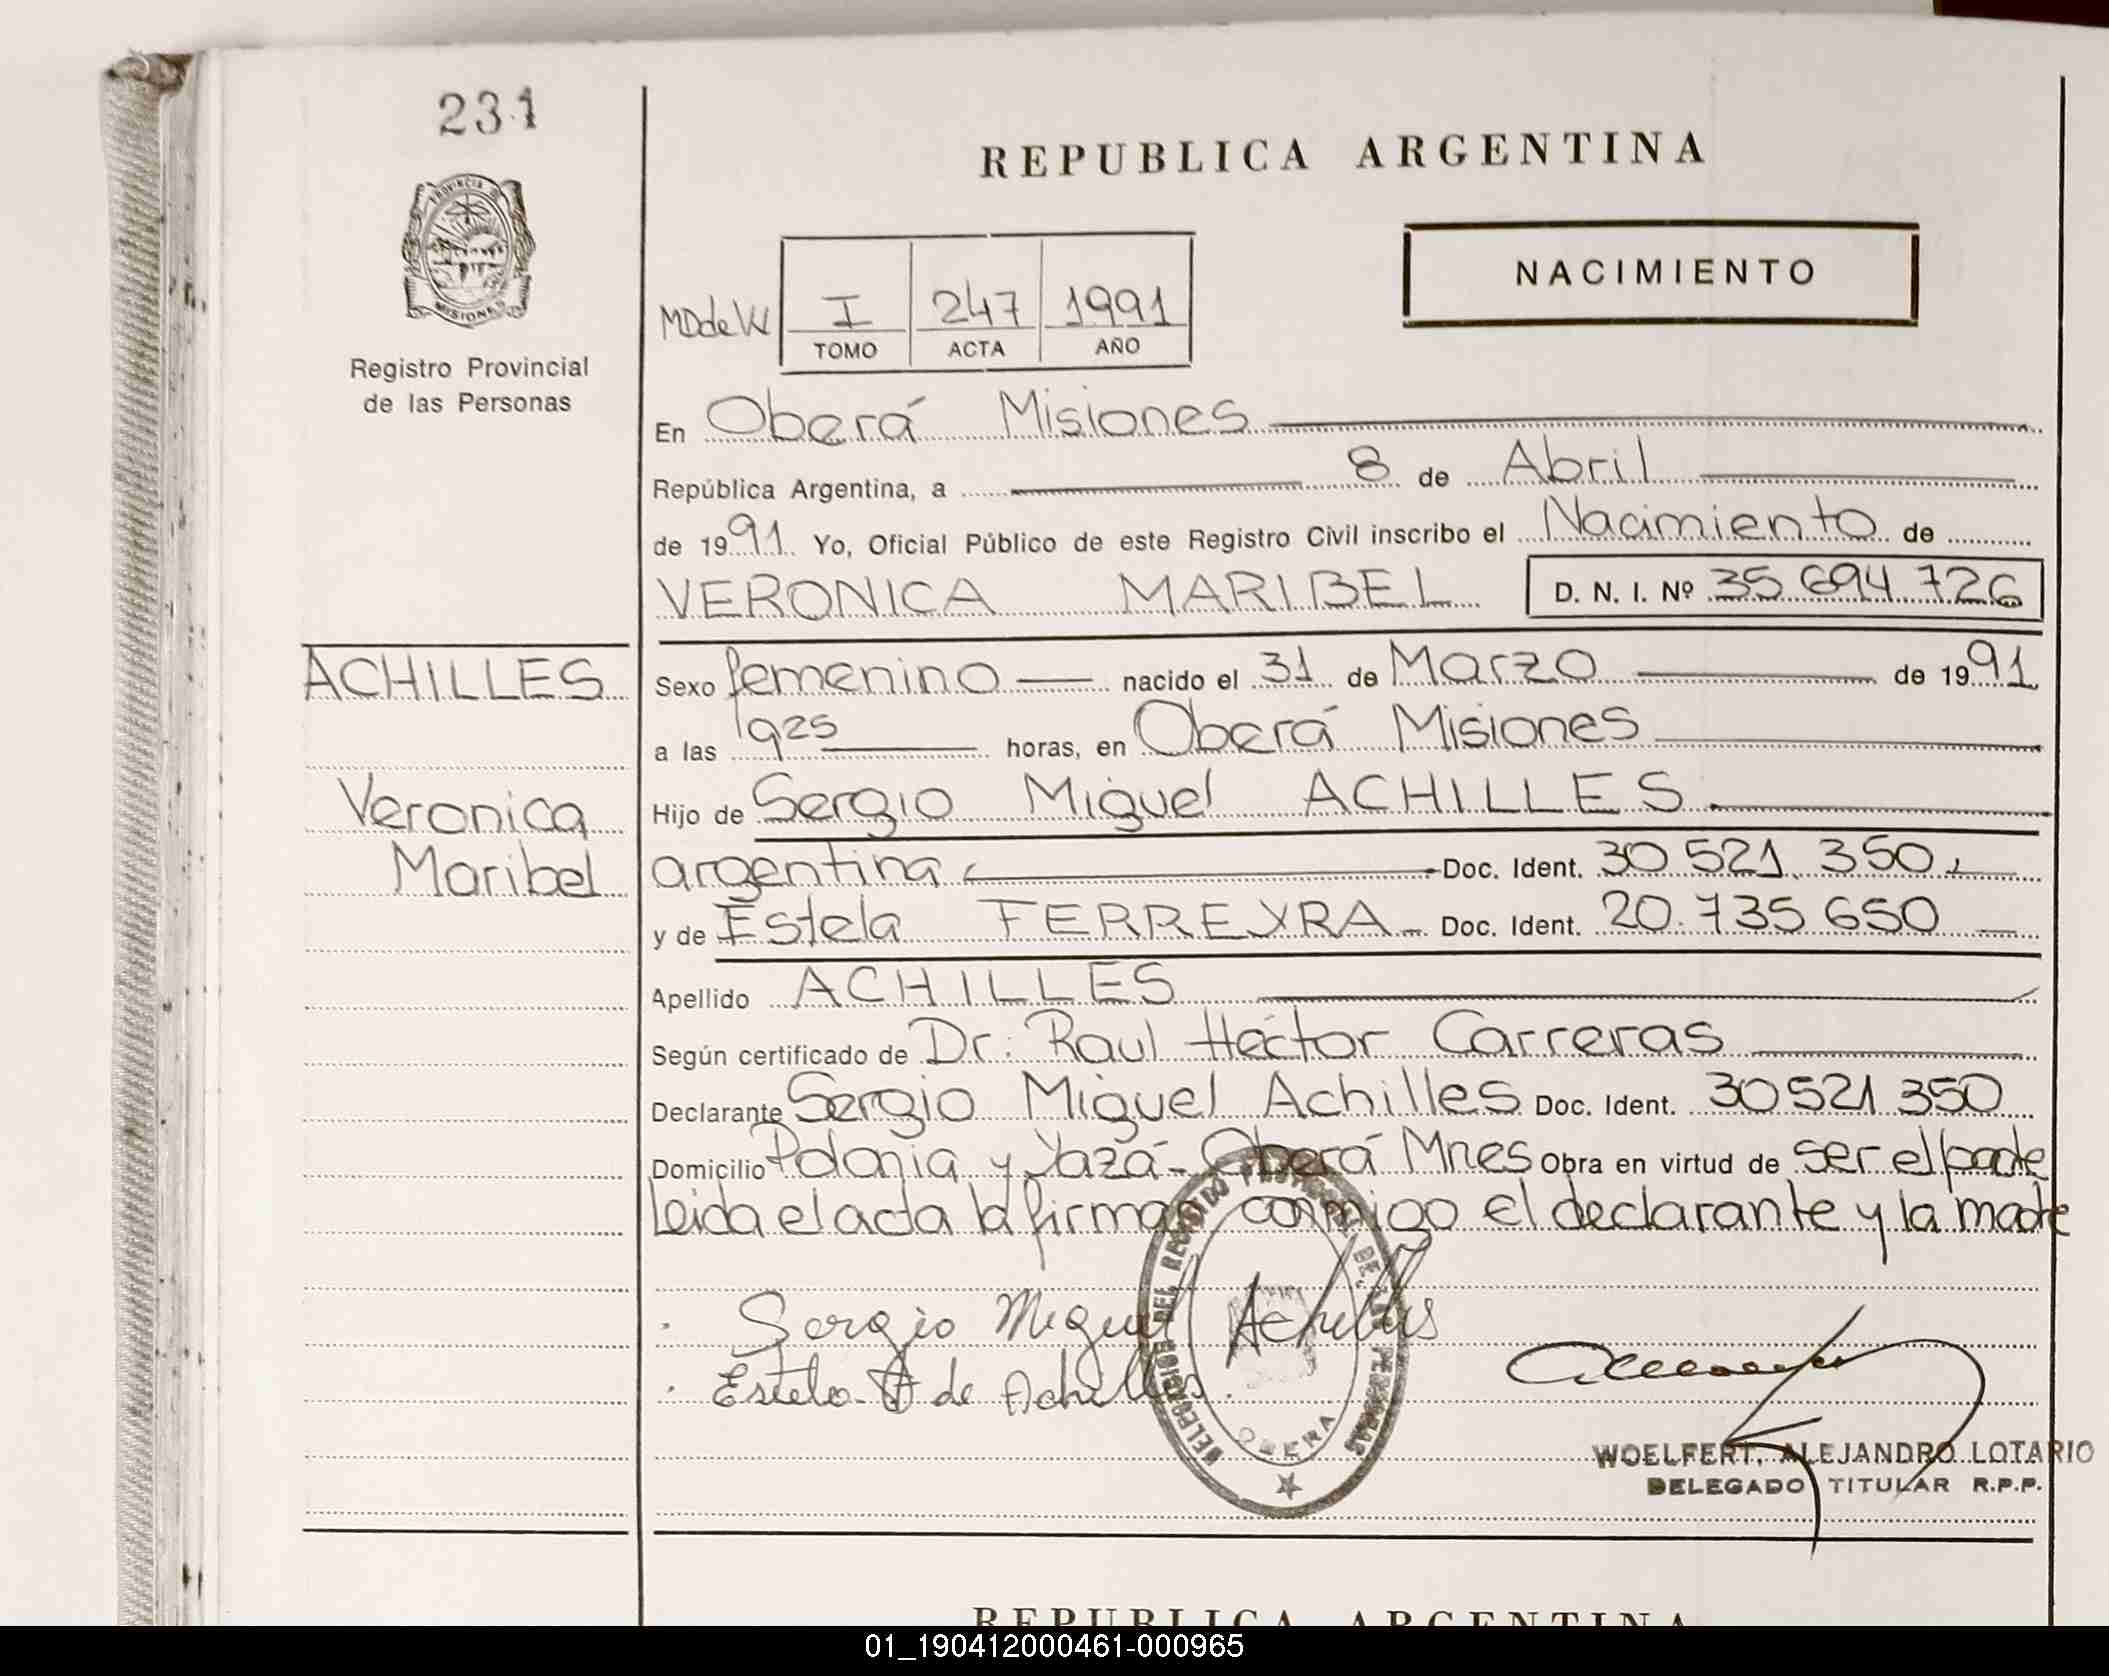 231
REPUBLICA ARGENTINA
PROVINCIA D
MISIONES
Registro Provincial
de las Personas
NACIMIENTO
MDdeW
I 247 1991
TOMO ACTA AÑO
En Oberá Misiones
República Argentina, a 8 de Abril
de 1991. Yo, Oficial Público de este Registro Civil inscribo el Nacimiento de
VERONICA MARIBEL D. N. I. Nº 35 694 726
ACHILLES
Sexo femenino nacido el 31 de Marzo de 1991
a las 1925 horas, en Oberá Misiones
Veronica
Maribel
Hijo de Sergio Miguel ACHILLES
argentina Doc. Ident. 30 521 350
y de Estela FERREYRA Doc. Ident. 20.735 650
Apellido ACHILLES
Según certificado de Dr. Raul Héctor Carreras
Declarante Sergio Miguel Achilles Doc. Ident. 30521 350
Domicilio Polonia y Yazá - Oberá Mnes Obra en virtud de ser el padre
Leida el acta la firman conmigo el declarante y la madre
Sergio Miguel Achilles
Estela F de Achilles
DELEGACION DEL REGISTRO PROVINCIAL DE LAS PERSONAS
OBERA
WOELFERT, ALEJANDRO LOTARIO
DELEGADO TITULAR R.P.P.
REPUBLICA ARGENTINA
01_190412000461-000965